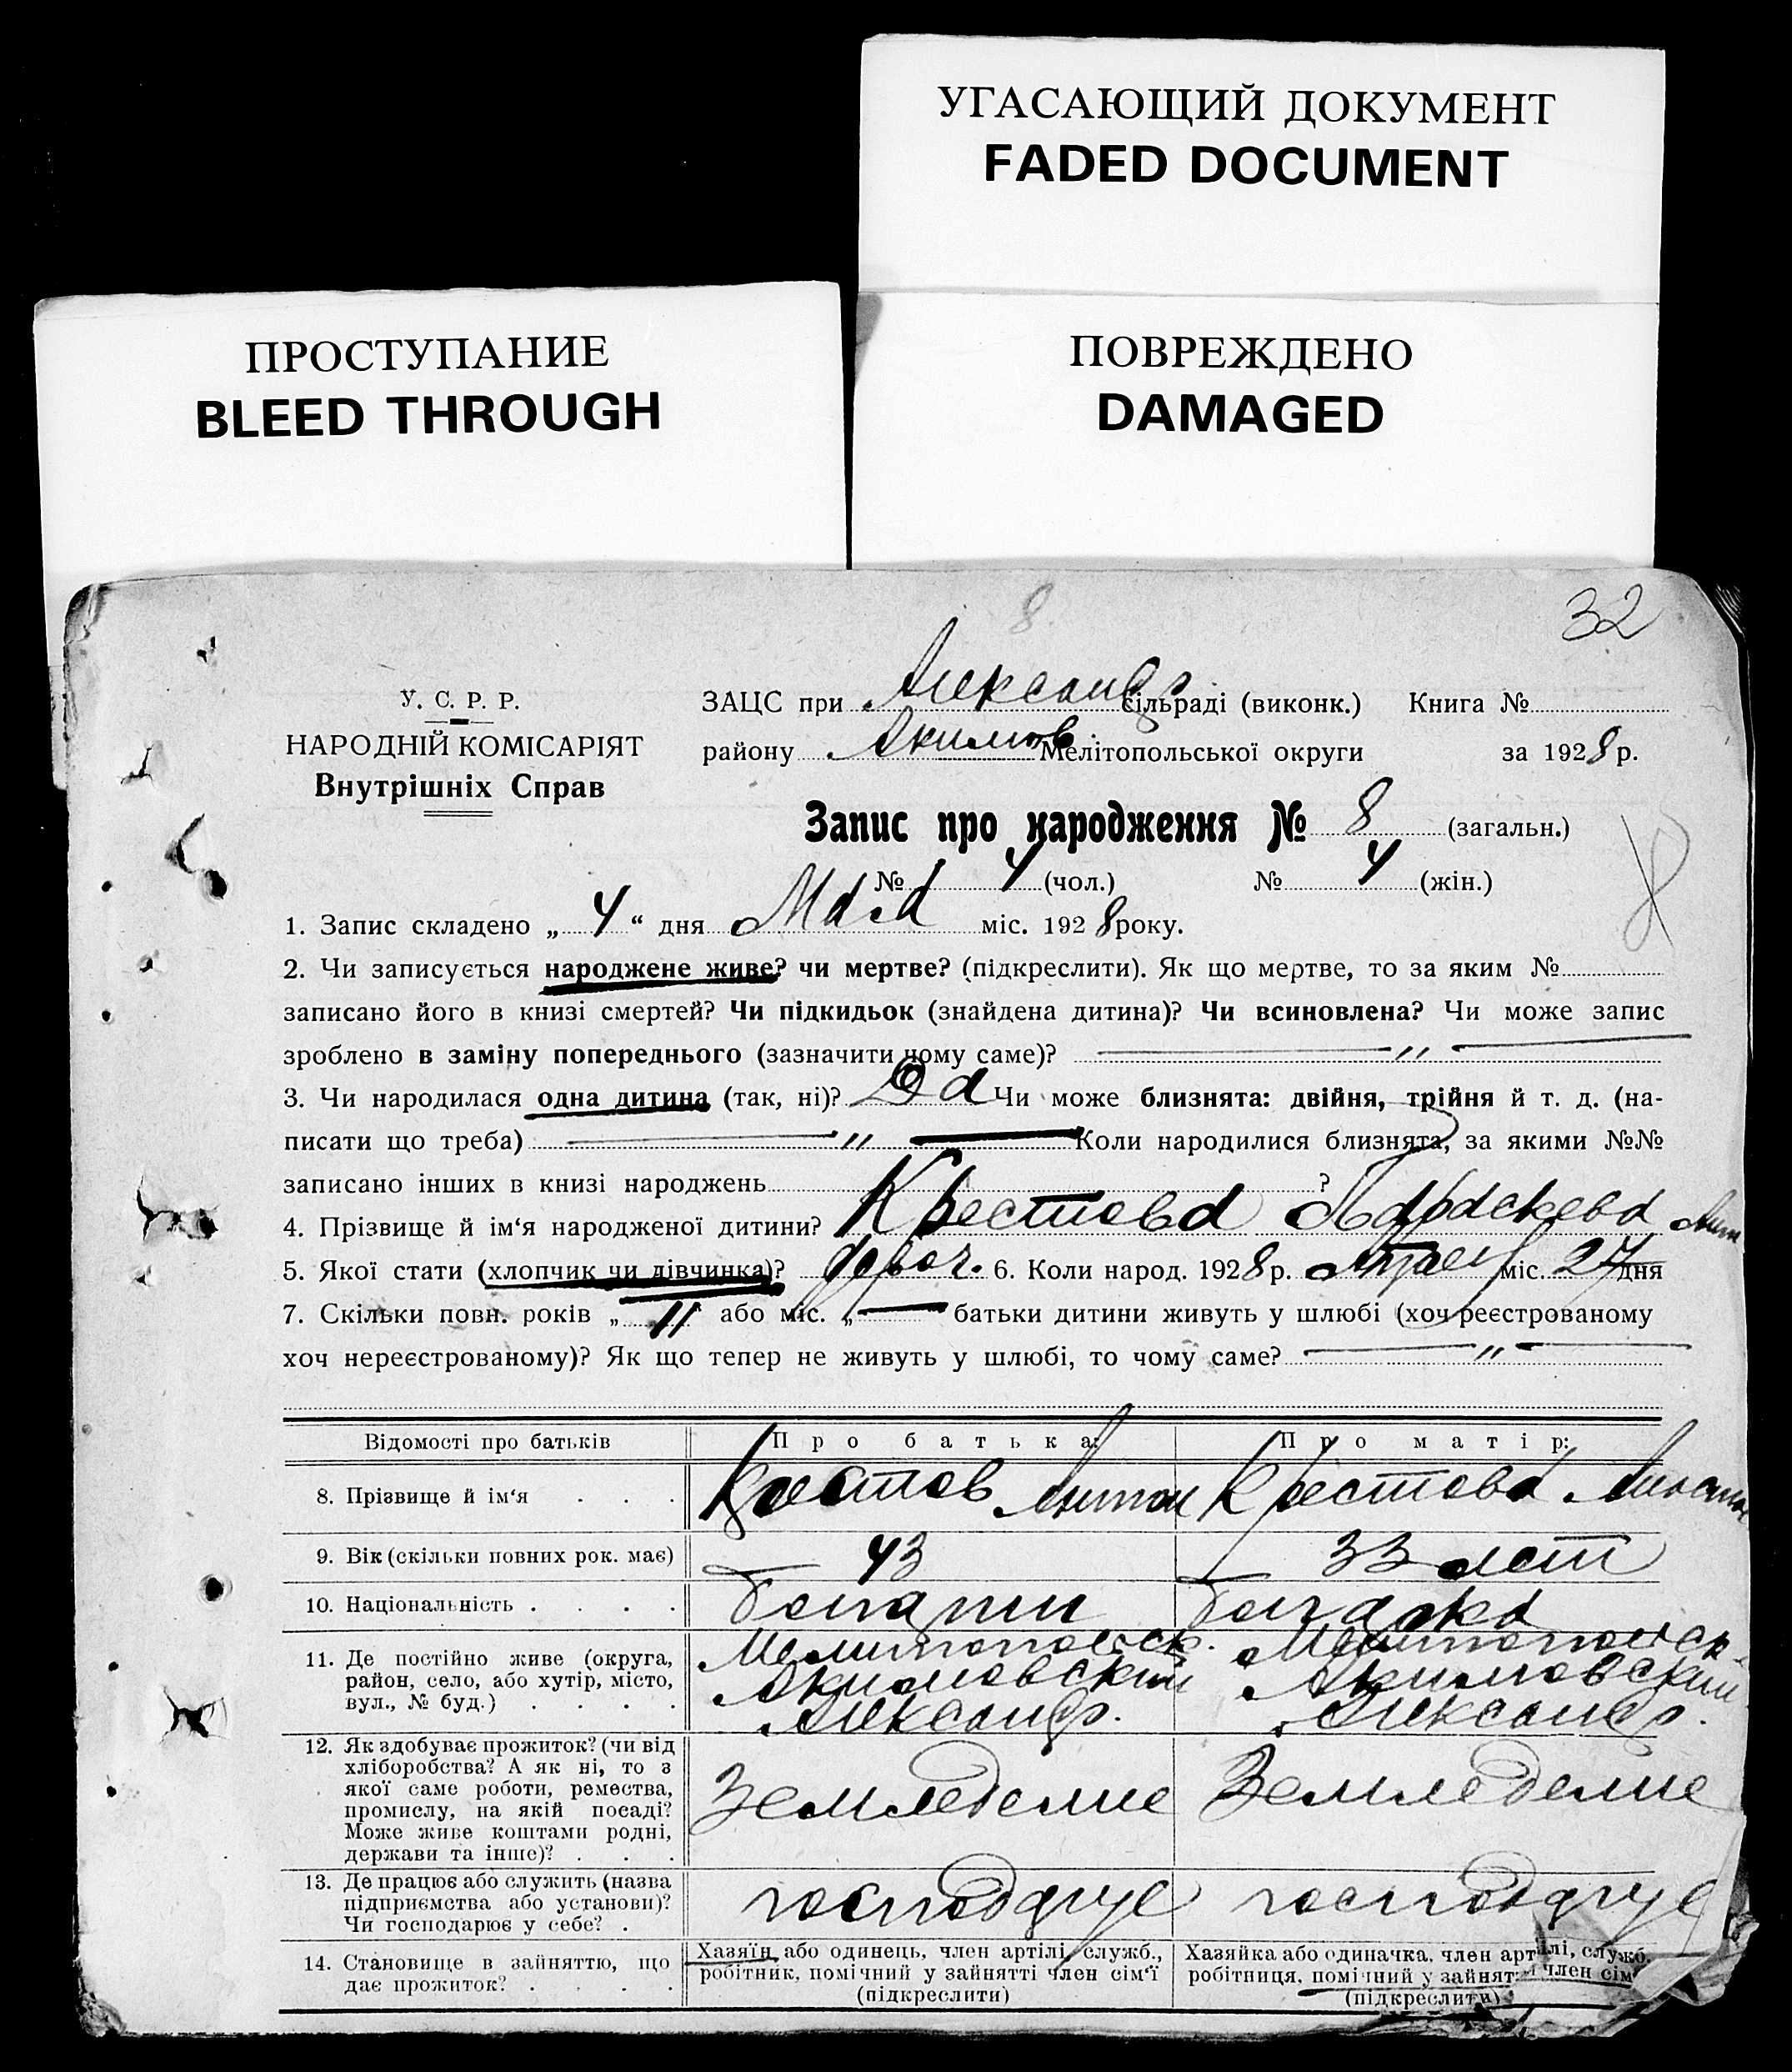 УГАСАЮЩИЙ ДОКУМЕНТ
FADED DOCUMENT
ПРОСТУПАНИЕ
BLEED THROUGH
ПОВРЕЖДЕНО
DAMAGED
8
32
У. С. Р. Р.
НАРОДНІЙ КОМІСАРІЯТ
Внутрішніх Справ
ЗАЦС при Александр сільраді (виконк.) Книга №
району Акимов. Мелітопольської округи за 1928 р.
Запис про народження № 8 (загальн.)
№ 4 (чол.) № 4 (жін.)
8
1. Запис складено „ 4 “ дня Мая міс. 1928 року.
2. Чи записується народжене живе? чи мертве? (підкреслити). Як що мертве, то за яким №
записано його в книзі смертей? Чи підкидьок (знайдена дитина)? Чи всиновлена? Чи може запис
зроблено в заміну попереднього (зазначити чому саме)? — „ —
3. Чи народилася одна дитина (так, ні)? Чи може близнята: двійня, трійня й т. д. (на-
писати що треба) — „ — Коли народилися близнята, за якими №№
записано інших в книзі народжень ?
4. Прізвище й ім‘я народженої дитини? Крестова Параскева Ант
5. Якої стати (хлопчик чи дівчинка)? 6. Коли народ. 1928 р. міс. 27 дня
7. Скільки повн. років „ 11 або міс. „ — батьки дитини живуть у шлюбі (хоч реєстрованому
хоч нереєстрованому)? Як що тепер не живуть у шлюбі, то чому саме? — „ —
Відомості про батьків Про батька: Про матір:
8. Прізвище й ім‘я . . . Крестов Антон Крестова
9. Вік (скільки повних рок. має) 43 33 лет
10. Національність . . . . болгарин болгарка
11. Де постійно живе (округа,
район, село, або хутір, місто,
вул., № буд.) . . . .
Мелитопольск.
Акимовский
Александр.
Мелитопольск.
Акимовский
Александр.
12. Як здобуває прожиток? (чи від
хліборобства? А як ні, то з
якої саме роботи, ремества,
промислу, на якій посаді?
Може живе коштами родні,
держави та інше)? . . .
Земледелие
Земледелие
13. Де працює або служить (назва
підприємства або установи)?
Чи господарює у себе? .
господарує
господарує
14. Становище в зайняттю, що
дає прожиток? . . . .
Хазяїн або одинець, член артілі, служб.,
робітник, помічний у зайнятті член сім‘ї
(підкреслити)
Хазяйка або одиначка, член артілі, служб.
робітниця, помічний у зайнят. член сім
(підкреслити)